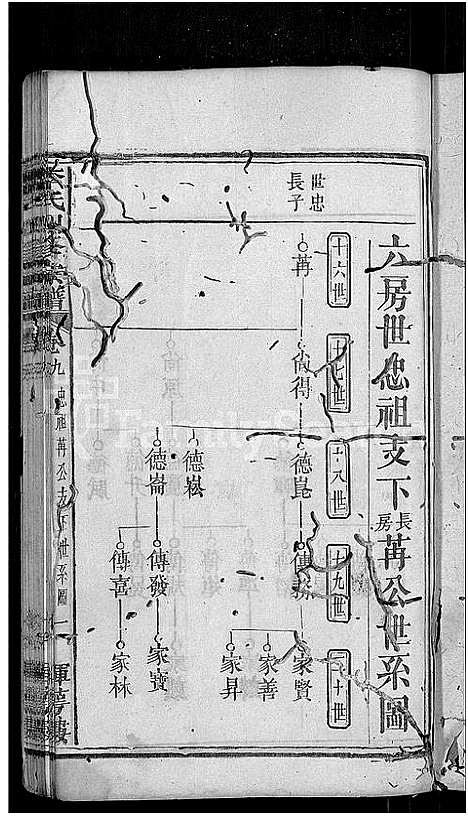 六房世忠祖支下長房苒公世系圖
十六世
十七世
十八世
十九世
二十世
世忠長子
苒
尙得
德崑
家賢
家善
家昇
德崧
德崙
傳發
家寶
傳喜
家林
氏
修宗譜
卷九
忠祖苒公支下世系圖
一